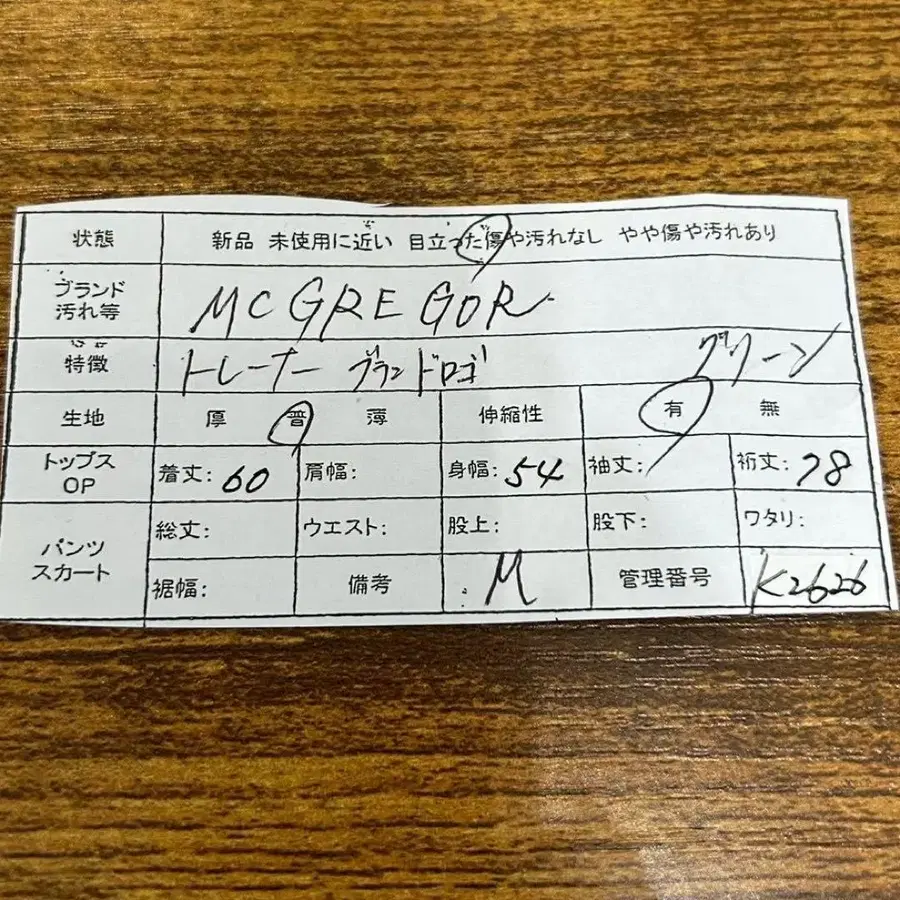 状態 新品 未使用に近い 目立った傷や汚れなし やや傷や汚れあり
ブランド
汚れ等 MCGREGOR
特徴 トレーナー ブランドロゴ グリーン
生地 厚 普 薄 伸縮性 有 無
トップス
OP 着丈: 60 肩幅: 身幅: 54 袖丈: 裄丈: 78
パンツ
スカート 総丈: ウエスト: 股上: 股下: ワタリ:
裾幅: 備考 M 管理番号 K2626